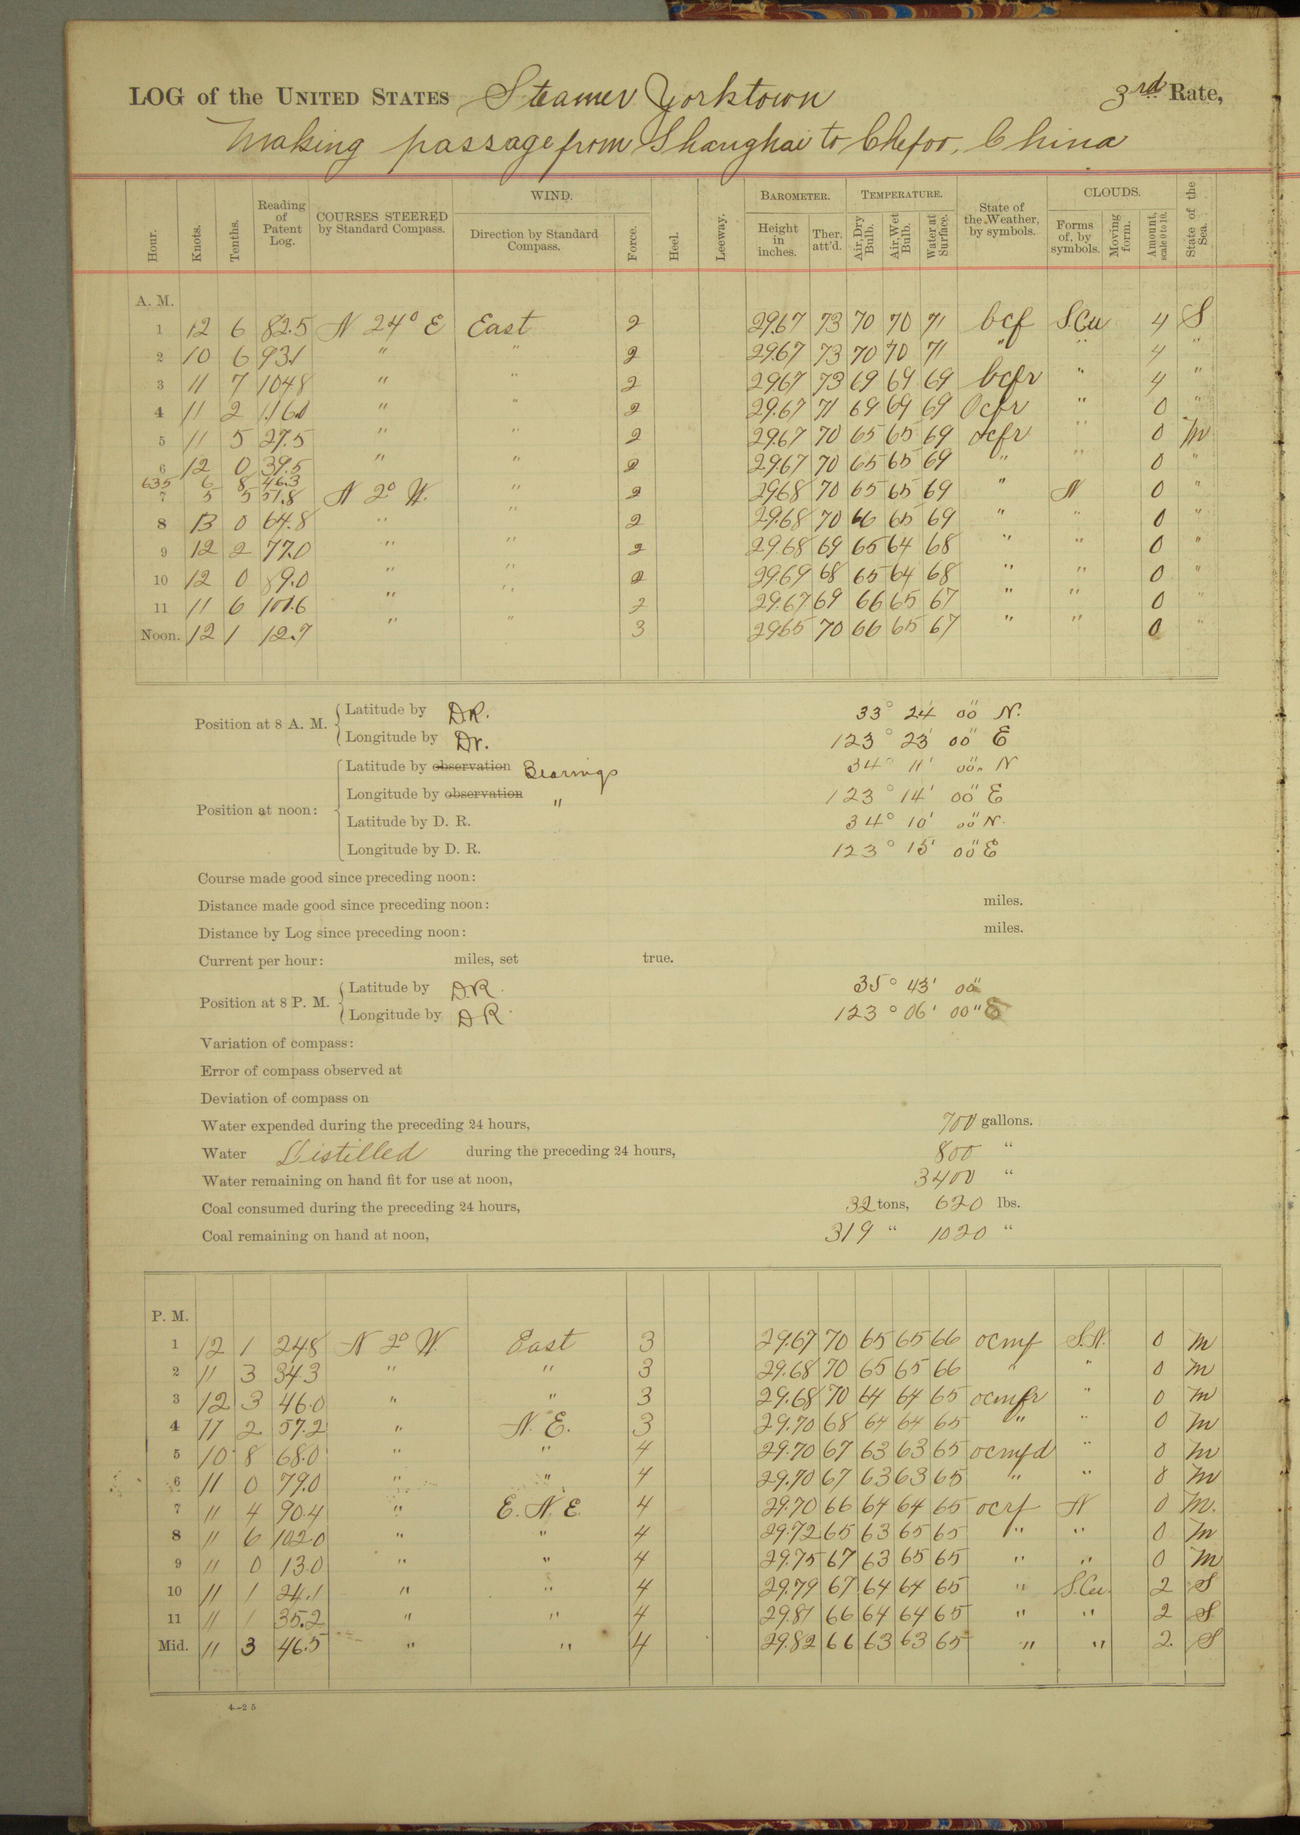 LOG of the UNITED STATES Steamer Yorktown 3rd Rate,
Making passage from Shanghai to Chefoo, China
Hour. Knots. Tenths. Reading of Patent Log. COURSES STEERED by Standard Compass. WIND. Direction by Standard Compass. Force. Heel. Leeway. BAROMETER. Height in inches. Ther. att'd. TEMPERATURE. Air, Dry Bulb. Air, Wet Bulb. Water at Surface. State of the Weather, by symbols. CLOUDS. Forms of, by symbols. Moving form. Amount, scale 0 to 10. State of the Sea.
A. M.
1 12 6 82.5 N 24° E East 2 29.67 73 70 70 71 bcf S.Cu 4 S
2 10 6 93.1 " " 2 29.67 73 70 70 71 " " 4 "
3 11 7 104.8 " " 2 29.67 73 69 69 69 bcfr " 4 "
4 11 2 116.0 " " 2 29.67 71 69 69 69 Ocfr " 0 "
5 11 5 27.5 " " 2 29.67 70 65 65 69 ocfr " 0 M
6 12 0 39.5 " " 2 29.67 70 65 65 69 " " 0 "
635 6 8 46.3
7 5 5 51.8 N 2° W. " 2 29.68 70 65 65 69 " N 0 "
8 13 0 64.8 " " 2 29.68 70 66 65 69 " " 0 "
9 12 2 77.0 " " 2 29.68 69 65 64 68 " " 0 "
10 12 0 89.0 " " 2 29.69 68 65 64 68 " " 0 "
11 11 6 101.6 " " 2 29.67 69 66 65 67 " " 0 "
Noon. 12 1 12.7 " " 3 29.65 70 66 65 67 " " 0 "
Position at 8 A. M. Latitude by D.R. 33° 24' 00" N.
Longitude by Dr. 123° 23' 00" E
Position at noon: Latitude by observation Bearings 34° 11' 00" N
Longitude by observation " 123° 14' 00" E
Latitude by D. R. 34° 10' 00" N.
Longitude by D. R. 123° 15' 00" E
Course made good since preceding noon:
Distance made good since preceding noon: miles.
Distance by Log since preceding noon: miles.
Current per hour: miles, set true.
Position at 8 P. M. Latitude by D.R. 35° 43' 00"
Longitude by D R. 123° 06' 00" E
Variation of compass:
Error of compass observed at
Deviation of compass on
Water expended during the preceding 24 hours, 700 gallons.
Water Distilled during the preceding 24 hours, 800 "
Water remaining on hand fit for use at noon, 3400 "
Coal consumed during the preceding 24 hours, 32 tons, 620 lbs.
Coal remaining on hand at noon, 319 " 1020 "
P. M.
1 12 1 24.8 N 2° W. East 3 29.67 70 65 65 66 ocmf S.N. 0 M
2 11 3 34.3 " " 3 29.68 70 65 65 66 " " 0 M
3 12 3 46.0 " " 3 29.68 70 64 64 65 ocmfr " 0 M
4 11 2 57.2 " N. E. 3 29.70 68 64 64 65 " " 0 M
5 10 8 68.0 " " 4 29.70 67 63 63 65 ocmfd " 0 M
6 11 0 79.0 " " 4 29.70 67 63 63 65 " " 0 M
7 11 4 90.4 " E. N. E. 4 29.70 66 64 64 65 ocrf N 0 M.
8 11 6 102.0 " " 4 29.72 65 63 65 65 " " 0 M
9 11 0 13.0 " " 4 29.75 67 63 65 65 " " 0 M
10 11 1 24.1 " " 4 29.79 67 64 64 65 " S.Cu. 2 S
11 11 1 35.2 " " 4 29.81 66 64 64 65 " " 2 S
Mid. 11 3 46.5 " " 4 29.82 66 63 63 65 " " 2. S
4—25